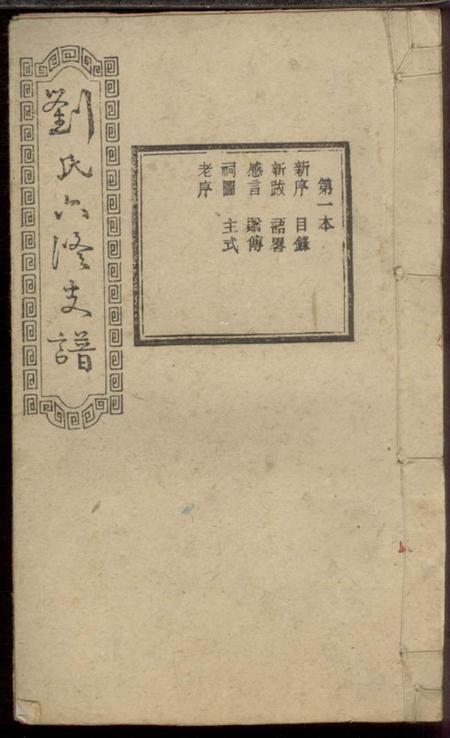 劉氏六修支譜
第一本
新序 目錄
新跋 語畧
感言 傳
祠圖 主式
老序